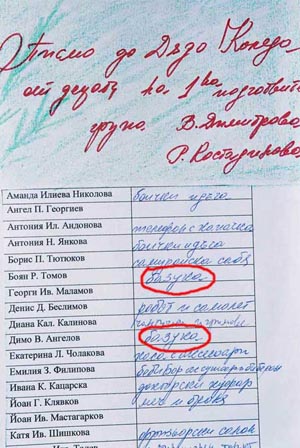 Писмо до Дядо Коледа
от децата на 1ва подготвителна
група. В. Димитрова
Р. Костадинова
Аманда Илиева Николова
Ангел П. Георгиев
Антония Ил. Андонова телефон с капачка
Антония Н. Янкова
Борис П. Тютюков самурайска сабя
Боян Р. Томов базука
Георги Ив. Маламов
Денис Д. Беслимов робот и самолет
Диана Кал. Калинова
Димо В. Ангелов базука
Екатерина Л. Чолакова
Емилия З. Филипова
Ивана К. Кацарска докторски куфар
Йоан Г. Клявков меч и броня
Йоан Ив. Мастагарков
Катя Ив. Шишкова фризьорски салон